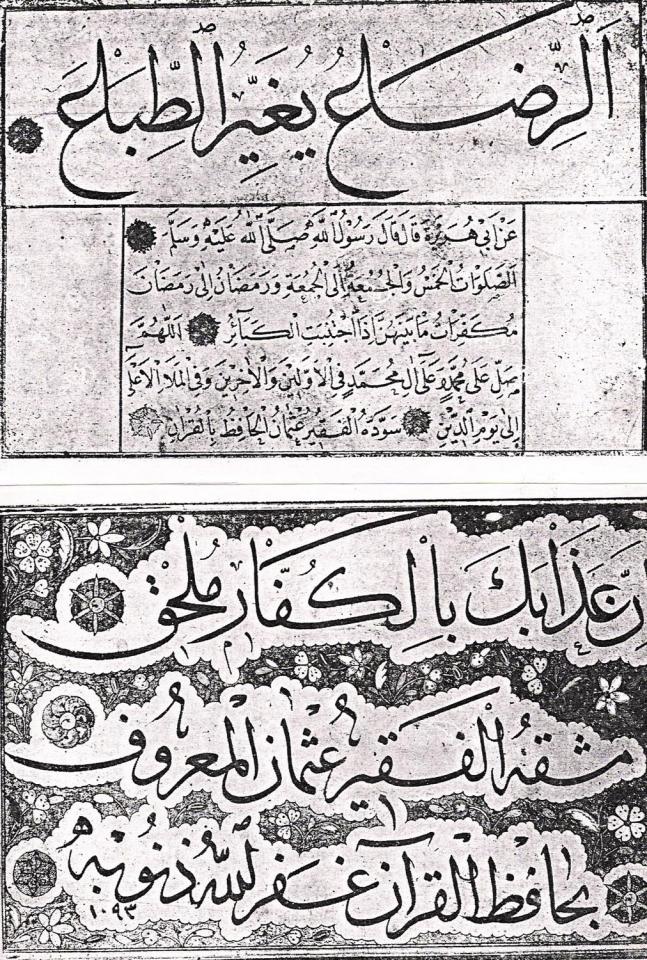 اَلرِّضَاعُ يُغَيِّرُ الطِّبَاعَ
عَنْ اَبِي هُرَيْرَةَ قَالَ قَالَ رَسُولُ اللهِ صَلَّى اللهُ عَلَيْهِ وَسَلَّمَ
اَلصَّلَوَاتُ الْخَمْسُ وَالْجُمْعَةُ اِلَى الْجُمْعَةِ وَرَمَضَانُ اِلَى رَمَضَانَ
مُكَفِّرَاتٌ مَا بَيْنَهُنَّ اِذَا اجْتُنِبَتِ الْكَبَآئِرُ اَللّٰهُمَّ
صَلِّ عَلَى مُحَمَّدٍ وَعَلَى اٰلِ مُحَمَّدٍ فِي الْاَوَّلِينَ وَالْاٰخِرِينَ وَفِي الْمَلَاِ الْاَعْلٰى
اِلَى يَوْمِ الدِّينِ سَوَّدَهُ الْفَقِيرُ عُثْمَانُ الْحَافِظُ بِالْقُرْاٰنِ
اِنَّ عَذَابَكَ بِالْكُفَّارِ مُلْحِقٌ
مشقه الفقير عثمان المعروف
بحافظ القرآن غفر الله ذنوبه
١٠٩٣